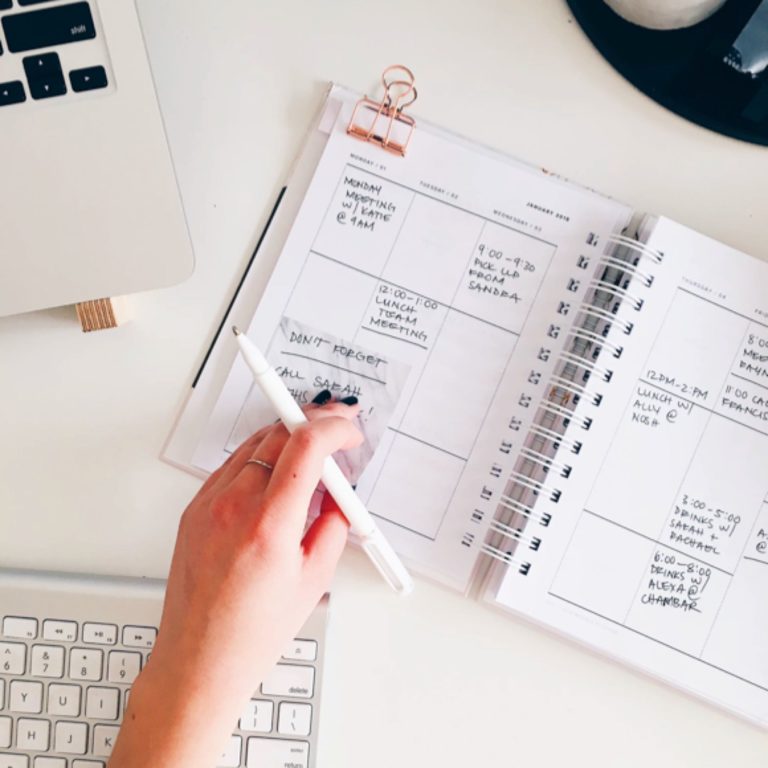 shift
MONDAY / 01
TUESDAY / 02
JANUARY 2018
WEDNESDAY / 03
MONDAY
MEETING
W/ KATIE
@ 9AM
9:00-9:30
PICK UP
FROM
SANDRA
12:00-1:00
LUNCH
TEAM
MEETING
DON'T FORGET
CALL SARAH
THURSDAY / 04
8:0
MEE
12PM-2:PM
LUNCH W/
ALLY @
NOSH
11:00 CAL
FRANCIS
3:00-5:00
DRINKS W/
SARAH +
RACHAEL
6:00-8:00
DRINKS W/
ALEXA @
CHAMBAR
^
6
&
7
*
8
(
9
Y
U
I
H
J
K
delete
}
]
|
\
enter
return